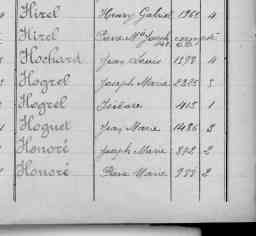 Hirel Henry Gabriel 1961 4
Hirel Pierre Mie Joseph
Hochard Jean Louis 1398 4
Hogrel Joseph Marie 2315 3
Hogrel Isidore 418 1
Hoguet Jean Marie 1486 3
Honoré Joseph Marie 892 2
Honoré Pierre Marie 988 2